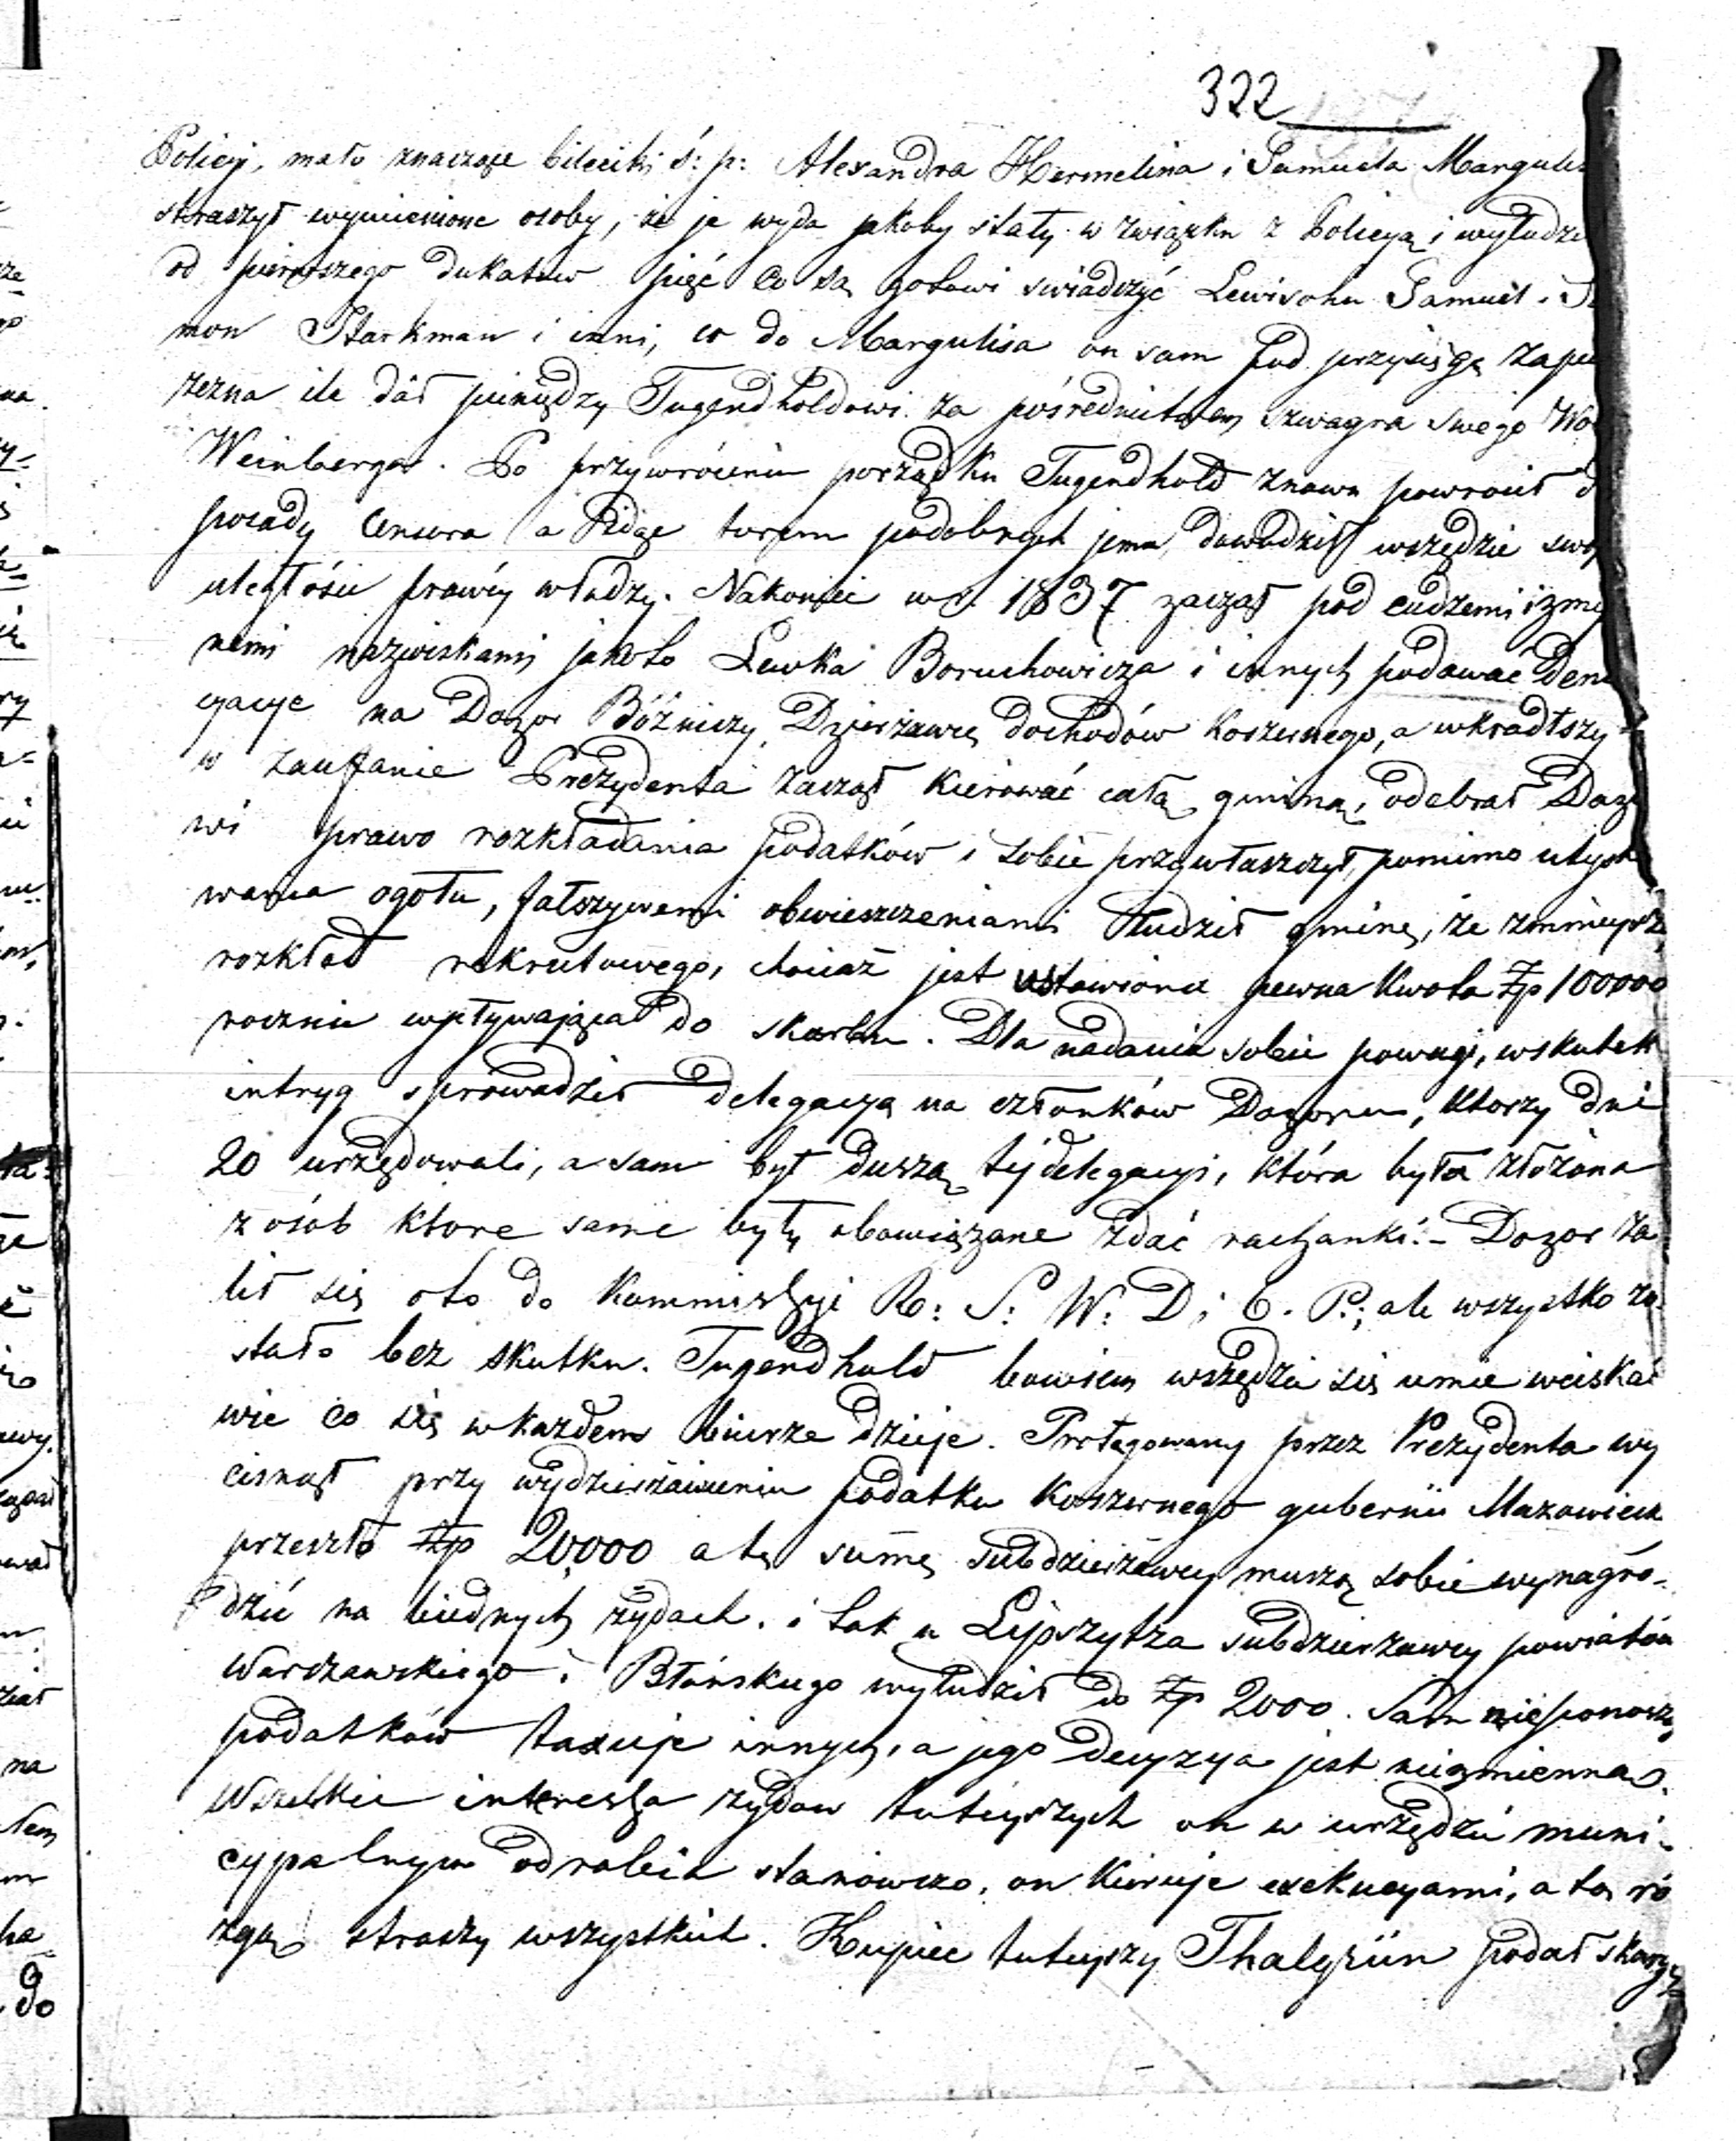 322
Policyi, mało znaczące bileciki ś: p: Alexandra Hermelina i Samuela Margulis
straszył wymienione osoby, że je wyda jakoby stały w związku z Policyą i wyłudził
od pierwszego dukatów pięć co są gotowi świadczyć Lewisohn Samuel i
mon Starkman i inni, co do Margulisa on sam pod przysięgą
zezna ile dał pieniędzy Tugendholdowi za pośrednictwem szwagra swego
Weinberga. Po przywróceniu porządku Tugendhold znowu powrócił d
posady Censora a idąc torem podobnych jemu, dowodził wszędzie swo
uległości prawéy władzy. Nakoniec w r. 1837 zaczął pod cudzemi i zmy
nemi nazwiskami jako to Lewka Boruchowicza i innych podawać Denu
cyacye na Dozór Bóżniczy, Dzierżawcę dochodów koszernego, a wkradłszy
w zaufanie Prezydenta zaczął kierować całą gminą, odebrał Dozo
wi prawo rozkładania podatków i sobie przywłaszczył, pomimo utyski
wania ogołu, fałszywemi obwieszczeniami łudził gminę, że zmnieysz
rozkład rekrutowego, chociaż jest ustawiona pewna kwota Złp 100000
rocznie wpływająca do skarbu. Dla nadania sobie powagi, wskutek
intryg sprowadził delegacyą na członków Dozoru, którzy dni
20 urzędowali, a sam był duszą téj delegacyi, która była złożona
z osób które same były obowiązane zdać rachunki. - Dozor ża
lił się o to do Kommissyi R: S: W: D: i O. P.; ale wszystko zo
stało bez skutku. Tugendhold bowiem wszędzie się umie wciskać
wie co się w każdem biurze dzieje. Protegowany przez Prezydenta wy
cisnął przy wydzierżawieniu podatku koszernego gubernii Mazowieck
przeszło Złp 20000 a tę sumę subdzierżawcy muszą sobie wynagro-
dzić na biednych żydach. i tak u Lipszytza subdzierżawcy powiatów
Warszawskiego i Błońskiego wyłudził do Złp 2000. Sam nie ponosząc
podatków taxuje innych, a jego decyzya jest niezmienna.
Wszelkie interessa żydów tutejszych on w urzędzie muni-
cypalnym odrabia stanowczo, on kieruje exekucyami, a tą ró
zgą straszy wszystkich. Kupiec tutejszy Thalgrün podał skargę